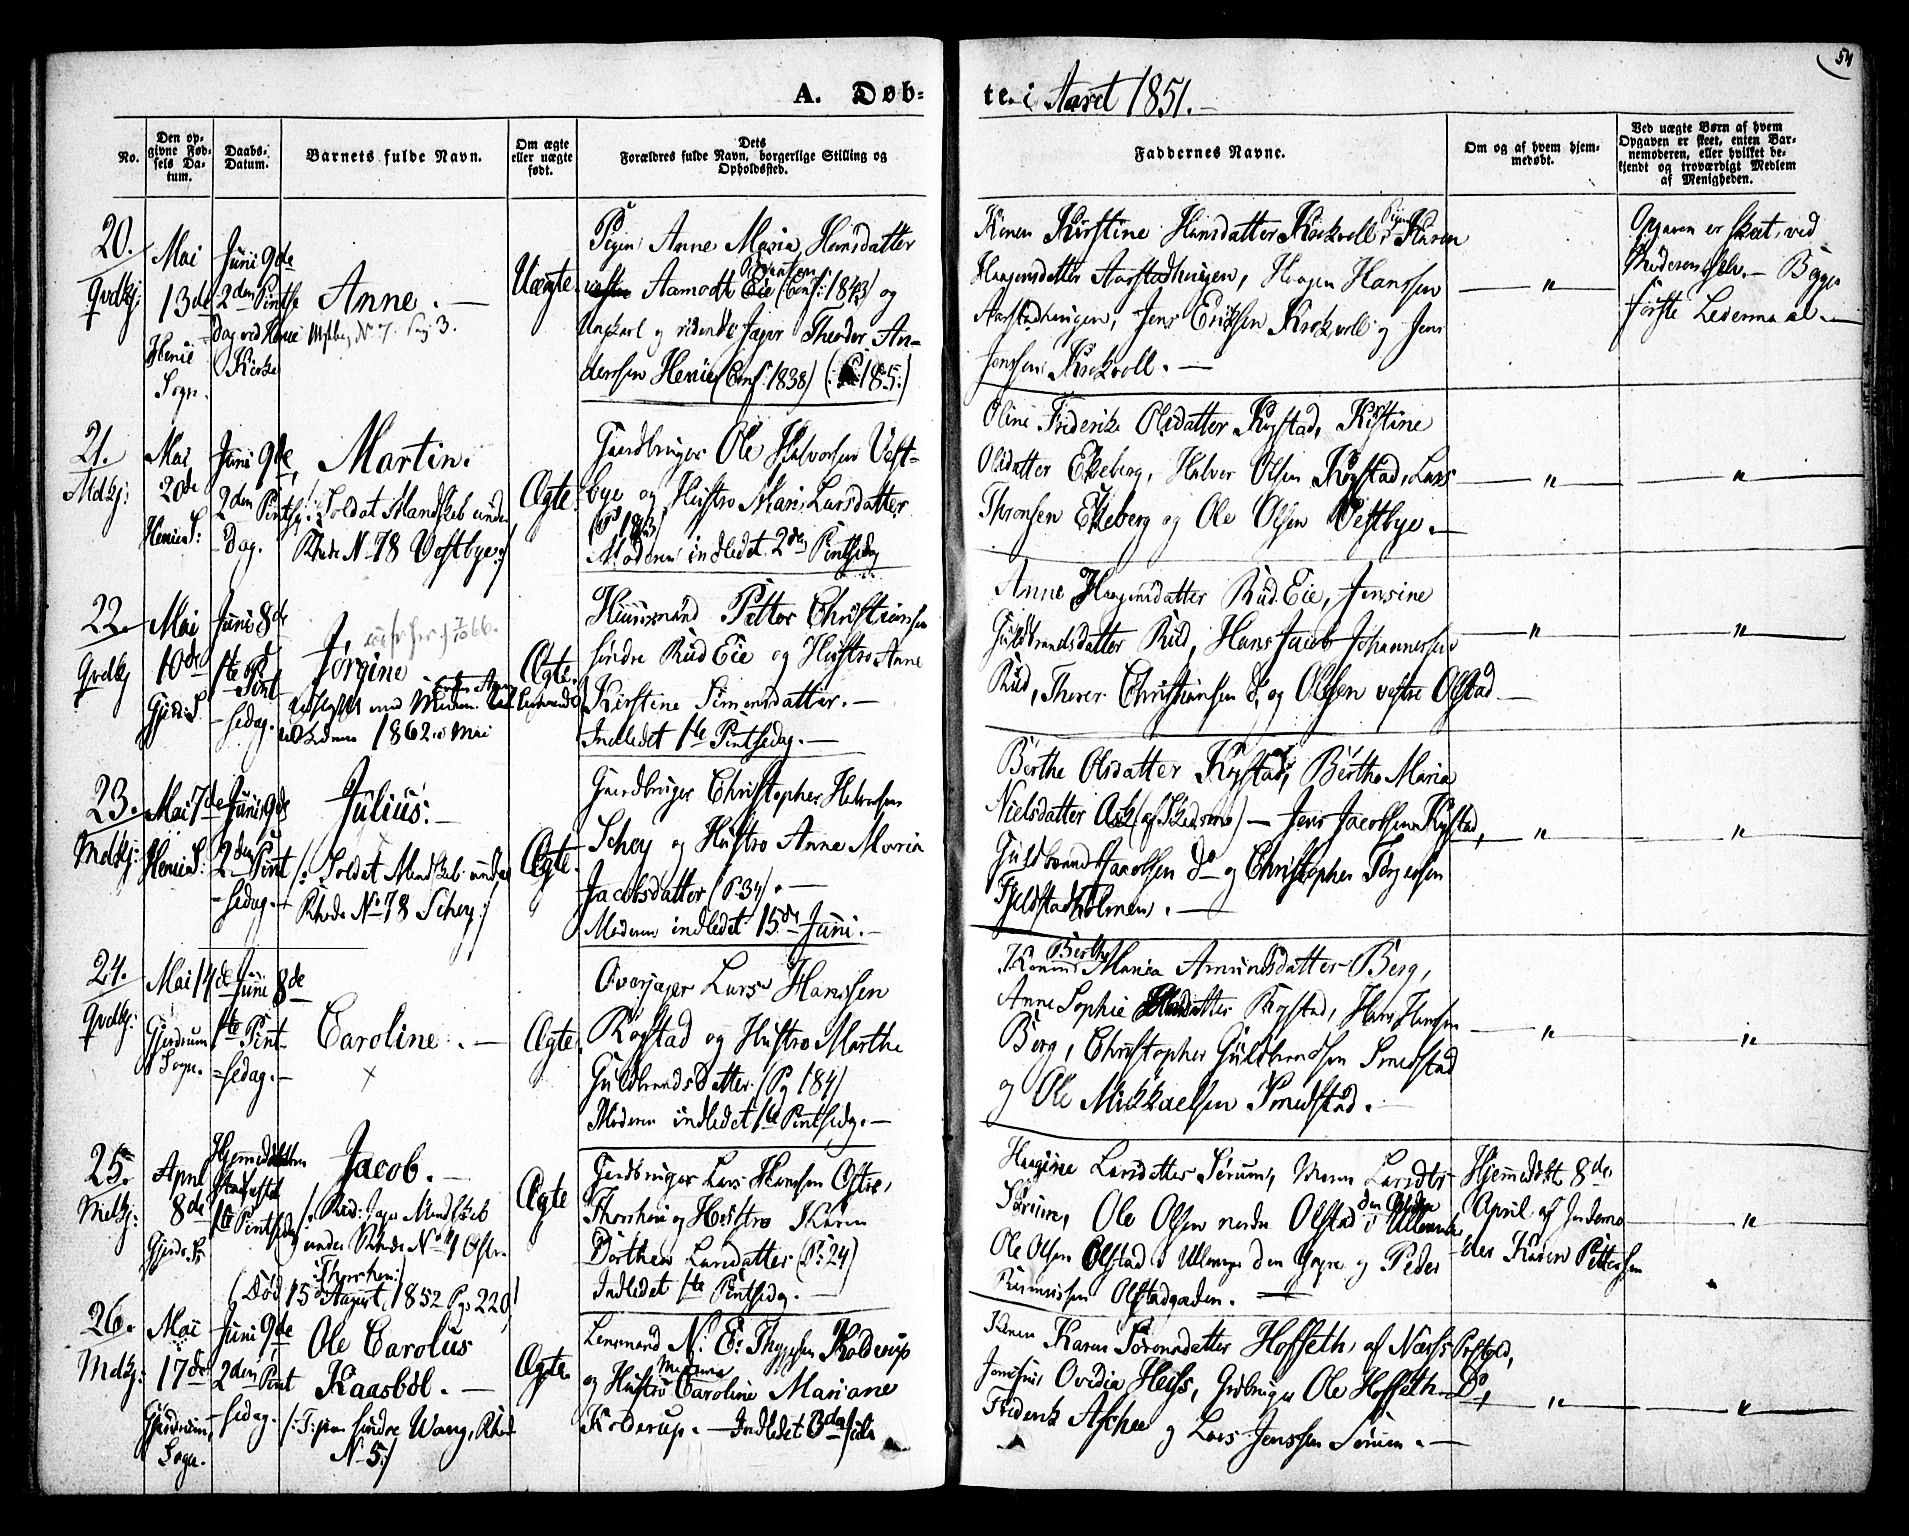 A. Døb-
te i Aaret 1851.
54
No.
Den op-
givne Fød-
sels Da-
tum.
Daabs-
Datum.
Barnets fulde Navn.
Om ægte
eller uægte
født.
Dets
Forældres fulde Navn, borgerlige Stilling og
Opholdssted.
Faddernes Navne.
Om og af hvem hjem-
medøbt.
Ved uægte Børn af hvem
Opgaven er skeet, enten Bar-
nemoderen, eller hvilket be-
kjendt og troværdigt Medlem
af Menigheden.
20.
Qvdkj:
Mai
13de
Henie
Sogn.
Juni 9de
2den Pintse
Dag ved Henie
Kirke
Anne. —
Uægte.
Pigen Anne Maria Hansdatter
Aamodt Eie (Conf: 1843) og
Ungkarl og ridende Jæger Theodor An-
derssen Henie (Conf: 1838) (185:)
Konen Kirstine Hansdatter Krokvoll, Pigen Karen
Haagensdatter Aarstadhaugen, Haagen Hanssen
Aarstadhaugen, Jens Eriksen Krokvoll og Jens
Jenssen Krokvoll. —
"
Opgaven er skeet ved
Moderen selv. — Begges
første Leiermaal. —
21.
Mdkj:
Mai
20de
Henie S:
Juni 9de
2den Pintse
Dag.
Martin.
/: Soldat Mandskab under
Rhode No 78 Vestbye :/
Ægte.
Gaardbruger Ole Halvorsen Vest-
bye og Hustro Mari Larsdatter
Moderen indledet 2den Pintsedag
Oline Frederike Olsdatter Kogstad, Kistine
Olsdatter Ekeberg, Halvor Olsen Kogstad, Lars
Thronsen Ekeberg og Ole Olsen Vestbye. —
"
"
22.
Qvdkj
Mai
10de
Gjerdr. S.
Juni 8de
1ste Pint-
sedag.
Jørgine
1862 Mai
Ægte.
Huusmand Petter Christiansen
søndre Rud Eie og Hustro Anne
Kirstine Simensdatter. —
Indledet 1ste Pintsedag. —
Anne Haagensdatter Rud Eie, Jensine
Guldbrandsdatter Rud, Hans Jacob Johannessen
Rud, Thorer Christiansen og Ole Olsen vestre Olstad —
"
"
23.
Mdkj:
Mai 7de
Henie S.
Juni 9de
2den Pint
sedag. —
Julius. —
/: Soldat Mandskab under
Rhode No 78 Schey :/
Ægte.
Gaardbruger Christopher Halvorsen
Schey og Hustro Anne Maria
Jacobsdatter (P. 34). —
Moderen indledet 15de Juni. —
Berthe Olsdatter Kogstad, Berthe Maria
Nielsdatter Ask (af Skedsmo) — Jens Jacobsen Kogstad,
Guldbrand Jacobsen Do og Christopher Torgersen
Fjeldstadholmen. —
"
"
24.
Qvdkj:
Mai 14de
Gjerdrum
Sogn.
Juni 8de
1ste Pint-
sedag. —
Caroline. —
x
Ægte.
Overjæger Lars Hanssen
Kogstad og Hustro Marthe
Guldbrandsdatter (Pg 184)
Moderen indledet 1ste Pintsedag. —
Konen Berthe Maria Amundsdatter Berg,
Anne Sophie Kogstad, Hans Hansen
Berg, Christopher Guldbrandsen Smedstad
og Ole Mikkaelsen Smedstad. —
"
"
25.
Mdkj:
April
8de
Gjerdr. Sn
Hjemmedøbt
1ste Pintsedag
Jacob. —
/: Rid: Jæger Mandskab
under Rhode No Østre
Thorshem :/
(Død 15 August 1852 Pg. 220)
Ægte
Gaardbruger Lars Hansen Østre
Thorshem og Hustro Karen
Dorthea Larsdatter (P: 24)
Indledet 1ste Pintsedag. —
Haagine Larsdatter Sørum, Maren Larsdtr
Sørum, Ole Olsen nordre Olstad den Ældre i Ullensaker
Ole Olsen Olstad i Ullensager den Yngre og Peder
Rasmussen Olstadgaarden. —
Hjemmedøbt 8de
April af Jordemo-
der Karen Pettersen
"
26.
Mdkj:
Mai
17de
Gjerdrum
Sogn.
Juni 9de
2den Pint
sedag. —
Ole Carolus
Kaasbøl. —
/: søndre Wang, Rhode
No 5 :/
Ægte.
Lensmand N. E. Koldrup
og Hustro Caroline Mariane
Kolderup. — Indledet
Konen Karen Sørensdatter Hoffseth, af Næss Præstgjd,
Jomfru Ovidia Heiss, Grdbruger Ole Hoffseth Do,
Frederik Aschee og Lars Jenssen Sørum. —
"
"